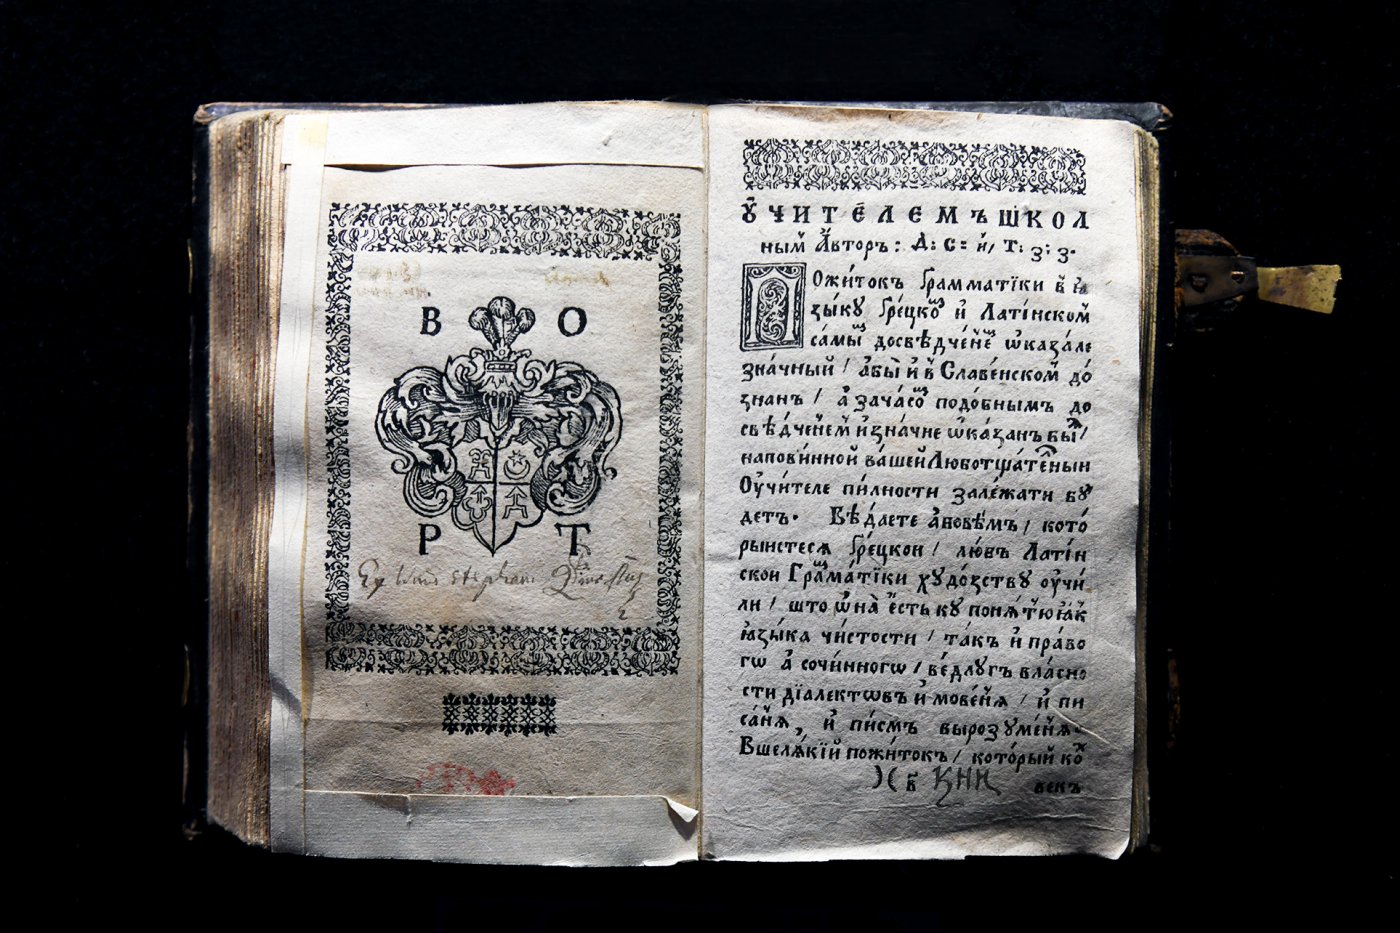 В О
Р Т
Ex
Stephani
ОУ҆ЧИТЕ́ЛЕМЪ ШКОЛ
ным҆ А҆́вторъ : Д: С: и҆, Т: З: З.
Пожи́токъ Ґрамматїки в̾ ꙗ҆
зы́ку Гре́цко и҆ Лати́нском
са́мы досвѣдче́нє ѡ҆каза́ле
зна́чный / а҆бы̀ и҆ в̾ Славе́нском до́
знанъ / а҆ зача́со подо́бнымъ до
свѣ́дченем и҆зна́чне ѡ҆ка́занъ бы /
напови́нной ва́шей Люботщате́ныи
Оучи́теле пи́лности зале́жати бꙋ
детъ. Вѣ́даете а҆бовѣ́мъ / кото́
рыистесѧ Гре́цкои / лю́въ Лати́н
скои Грама́тїки хꙋдо́зствꙋ оу҆чи́
ли / што ѡ҆на̀ є҆́сть кꙋ понѧ́тю ꙗ҆к
ꙗ҆зы́ка чи́стости / та́къ и҆ пра́во
гѡ а҆ сочи́нногѡ / ве́длꙋгъ вла́сно
сти дїале́ктѡвъ и҆ мове́нѧ / и҆ пи
са́нѧ, и҆ пи́смъ вырозꙋме́нѧ.
Вшелѧ́кїй пожи́токъ / кото́рый ко
в̾
векъ